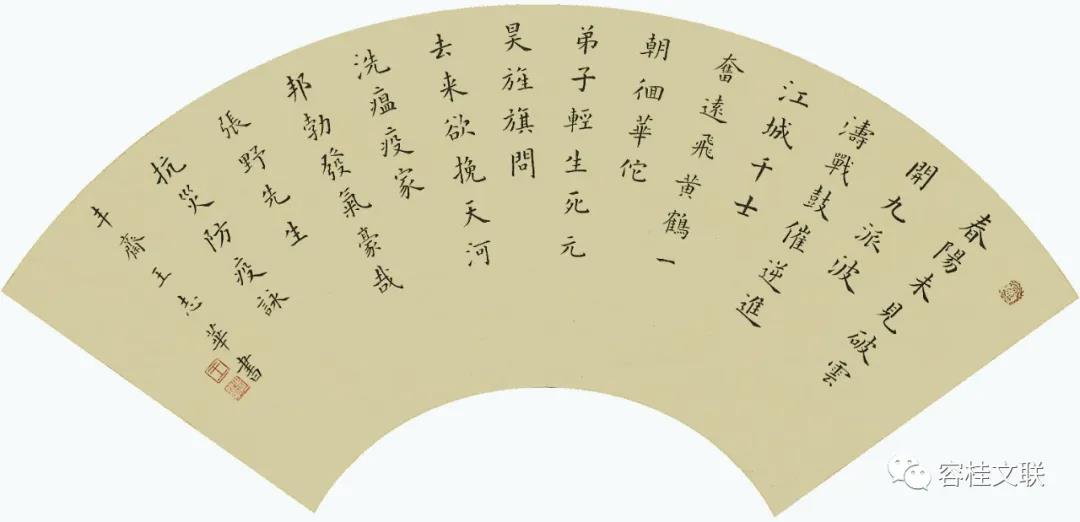 春陽未見破雲
開九派波
濤戰鼓催逆進
江城千士
奮遠飛黄鶴一
朝徊華佗
弟子輕生死元
昊旌旗問
去来欲挽天河
洗瘟疫家
邦勃發氣豪哉
張野先生
抗災防疫詠
丰齋王志華書
容桂文联